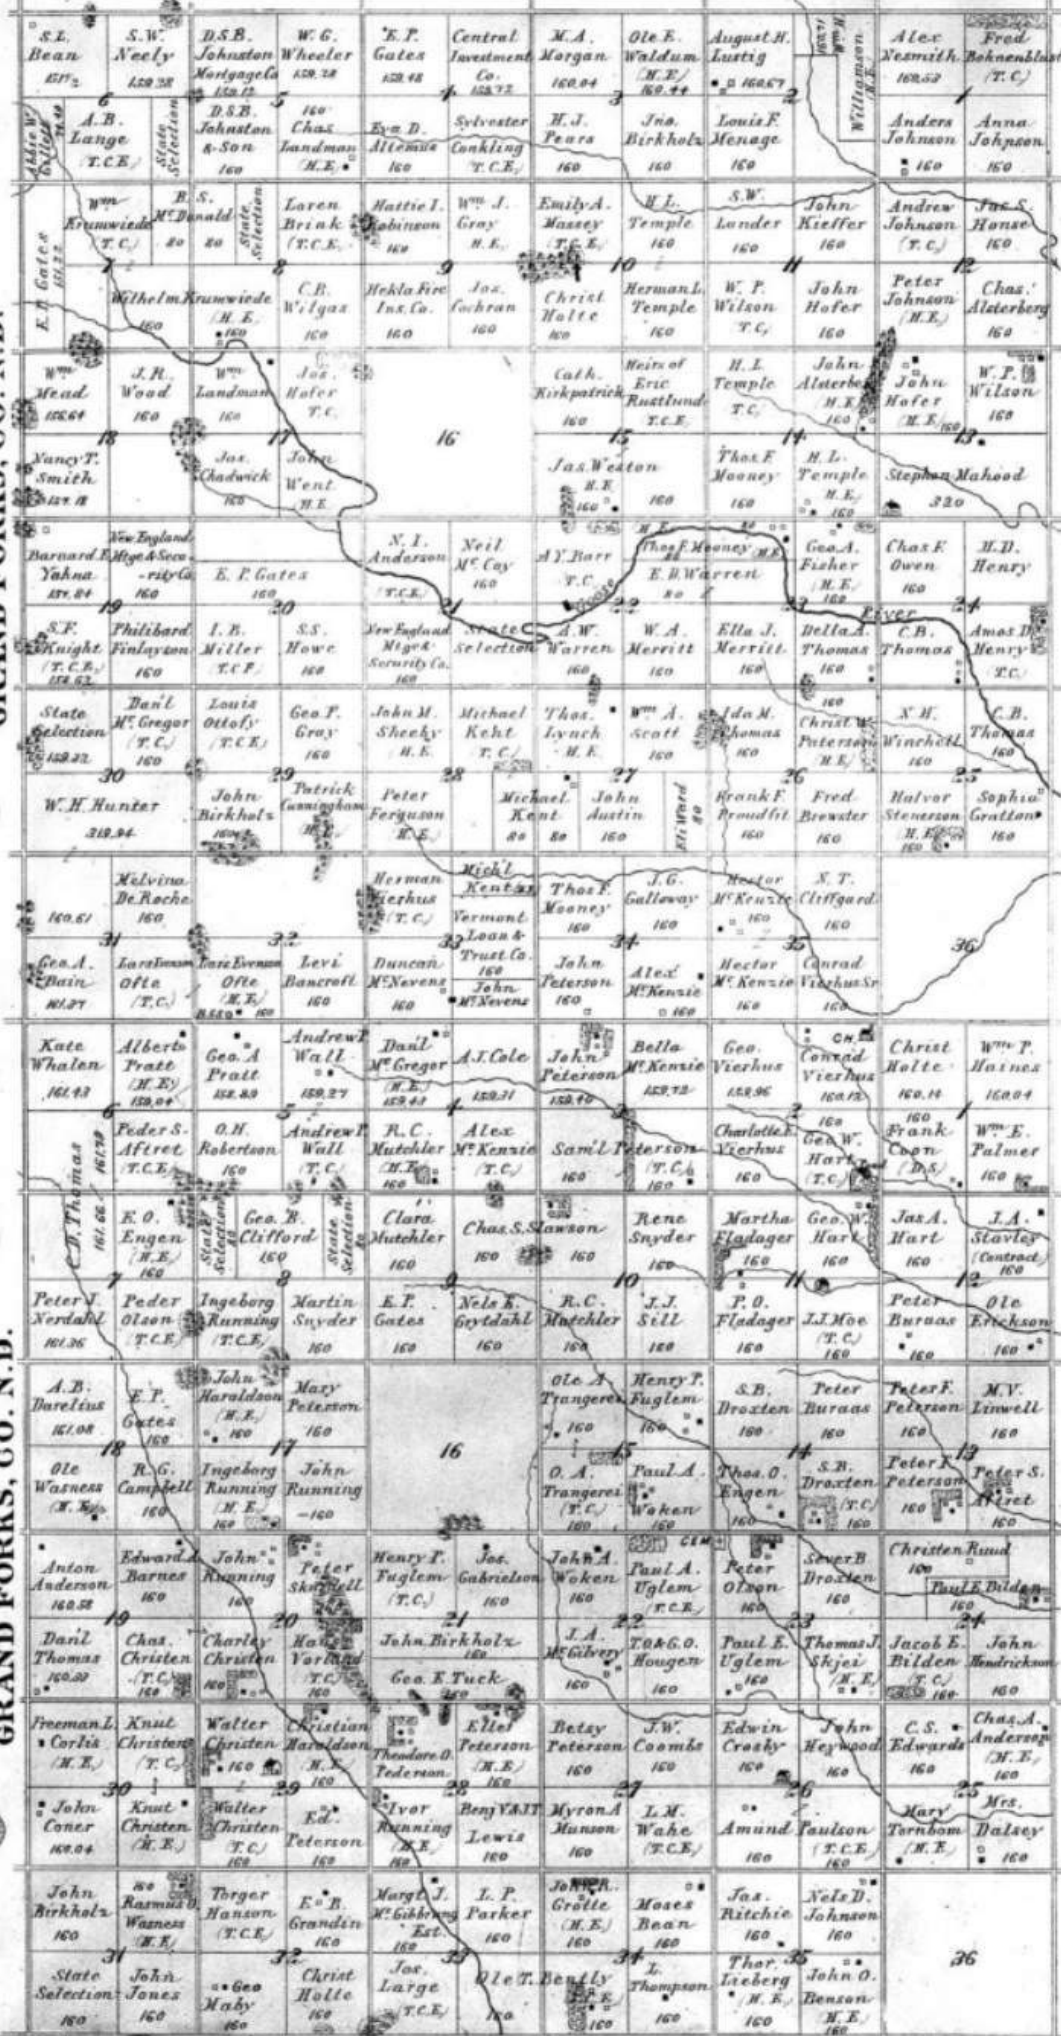 GRAND FORKS, CO. N.D.
GRAND FORKS, CO. N.D.
S.L. Bean
S.W. Neely 159.28
D.S.B. Johnston Mortgage Co 159.12
W.G. Wheeler 159.28
E.P. Gates 159.48
Central Investment Co. 159.72
M.A. Morgan 160.04
Ole E. Waldum (H.E.) 160.44
August H. Lustig 160.67
Williamson
Alex Nesmith 160.53
Fred Bohnenblust (T.C.)
6
5
4
3
2
1
A.B. Lange (T.C.E.)
State Selection
D.S.B. Johnston & Son 160
160 Chas Landman (H.E.)
Eva D. Altemus 160
Sylvester Conkling (T.C.E.)
H.J. Pears 160
Jno. Birkholz 160
Louis F. Menage 160
Anders Johnson 160
Anna Johnson 160
E.P. Gates 151.22
Wm Krumwiede (T.C.)
B.S. McDonald 80 80
State Selection
Loren Brink (T.C.E.)
Hattie I. Robinson 160
Wm J. Gray H.E.
Emily A. Massey (T.C.E.)
H.L. Temple 160
S.W. Lander 160
John Kieffer 160
Andrew Johnson (T.C.)
Jas S. House 160
7
8
9
10
11
12
Wilhelm Krumwiede 160 (H.E.) 160
C.B. Wilgas 160
Hekla Fire Ins. Co. 160
Jos. Cochran 160
Christ Holte 160
Herman L. Temple 160
W.P. Wilson T.C.
John Hofer 160
Peter Johnson (H.E.)
Chas. Alsterberg 160
Wm Mead 156.64
J.R. Wood 160
Wm Landman 160
Jos. Hofer T.C.
16
Cath. Kirkpatrick 160
Heirs of Eric Rustlund T.C.E.
H.L. Temple T.C.
John Alsterberg (H.E.) 160
John Hofer (H.E.) 160
W.P. Wilson 160
18
17
15
14
13
Nancy T. Smith 157.18
Jas. Chadwick 160
John Went H.E.
Jas. Weston H.E. 160 160
Thos. F. Mooney 160
H.L. Temple H.E. 160
Stephen Mahood 320
Barnard F. Yahna 157.84
New England Mtge & Security Co 160
E.P. Gates 160
N.I. Anderson (T.C.E.)
Neil McCoy 160
A.Y. Barr T.C.
Thos F. Mooney 80 H.E.
E.D. Warren 80
Geo. A. Fisher (H.E.) 160
Chas F. Owen 160
H.D. Henry
19
20
21
22
23
24
Goose
River
S.F. Knight (T.C.E.) 158.62
Philibard Finlayson 160
I.B. Miller T.C.F.
S.S. Howe 160
New England Mtge & Security Co. 160
State Selection
A.W. Warren 160
W.A. Merritt 160
Ella J. Merritt 160
Della A. Thomas 160
C.B. Thomas
Amos D. Henry (T.C.)
State Selection 159.22
Dan'l McGregor (T.C.) 160
Louis Ottofy (T.C.E.)
Geo. P. Gray 160
John M. Sheehy H.E.
Michael Kent T.C.
Thos. Lynch H.E.
Wm A. Scott 160
Ida M. Thomas 160
160 Christ W. Paterson H.E.
N.H. Winchell
C.B. Thomas 160
30
29
28
27
26
25
W.H. Hunter 319.94
John Birkholz 160
Patrick Cunningham H.E.
Peter Ferguson H.E.
Michael Kent 80 80
John Austin 160
Eli Ward 80
Frank F. Proudfit 160
Fred Brewster 160
Halvor Stenerson H.E. 160
Sophia Gratton 160
160.61
Melvina De Roche 160
Herman Vierhus (T.C.)
Mich'l Kent
Vermont Loan & Trust Co. 160
Thos F. Mooney 160
J.G. Galloway 160
Hector McKenzie 160
N.T. Cliffgard 160
31
32
33
34
35
36
Geo. A. Bain 161.27
Lars Evenson Ofte (T.C.)
Lars Evenson Ofte (H.E.) 160
Levi Bancroft 160
Duncan McNevens 160
John McNevens
John Peterson 160
Alex McKenzie 160
Hector McKenzie 160
Conrad Vierhus Sr 160
Kate Whalen 161.43
Albert Pratt (H.E.) 159.04
Geo. A Pratt 158.89
Andrew P. Wall 159.27
Dan'l McGregor (H.E.) 159.43
A.J. Cole 159.31
John Peterson 159.40
Bella McKenzie 159.72
Geo. Vierhus 159.96
CH.
Conrad Vierhus 160.12
Christ Holte 160.14
Wm P. Haines 160.04
6
5
4
3
2
1
Peder S. Aftret (T.C.E.)
O.H. Robertson 160
Andrew P. Wall (T.C.) 160
R.C. Mutchler (H.E.) 160
Alex McKenzie (T.C.)
Sam'l Peterson 160 (T.C.) 160
Charlotte E. Vierhus 160
Geo W. Hart (T.C.)
160 Frank Coon (D.S.)
Wm E. Palmer 160
C.D. Thomas 161.66 161.78
E.O. Engen (H.E.) 160
State Selection 80
Geo. B. Clifford 160
State Selection 80
Clara Mutchler 160
Chas. S. Slawson 160 160
Rene Snyder 160
Martha Fladager 160
Geo. W. Hart 160
Jas A. Hart 160
J.A. Stavley (Contract) 160
7
8
9
10
11
12
Peter J. Nerdahl 161.36
Peder Olson (T.C.E.)
Ingeborg Running (T.C.E.)
Martin Snyder 160
E.P. Gates 160
Nels E. Grytdahl 160
R.C. Mutchler 160
J.J. Sill 160
P.O. Fladager 160
J.J. Moe (T.C.) 160
Peter Buraas 160
Ole Erickson 160
A.B. Darelius 161.08
E.P. Gates 160
John Haraldson (H.E.) 160
Mary Peterson 160
16
Ole A Trangerei 160
Henry P. Fuglem 160
S.B. Droxten 160
Peter Buraas 160
Peter F. Peterson 160
M.V. Linwell 160
18
17
15
14
13
Ole Wasness (H.E.)
R.G. Campbell 160
Ingeborg Running (H.E.) 160
John Running 160
O.A. Trangerei (T.C.) 160
Paul A. Woken 160
Thos. O. Engen 160
S.B. Droxten (T.C.) 160
Peter F. Peterson 160
Peter S. Aftret 160
Anton Anderson 160.58
Edward A Barnes 160
John Running 160
Peter
Henry P. Fuglem (T.C.)
Jos. Gabrielson 160
John A. Woken 160
CEM
Paul A. Uglem (T.C.E.)
Peter Olson 160
Sever B Droxten 160
Christen Ruud 160
Paul E Bilden 160
19
20
21
22
23
24
Dan'l Thomas 160.33
Chas. Christen (T.C.) 160
Charley Christen 160
Vorland (T.C.) 160
John Birkholz
Geo. E. Tuck 160
J.A. McGilvery 160
T.O. & G.O. Hougen 160
Paul E. Uglem 160
Thomas J. Skjei (H.E.)
Jacob E. Bilden (T.C.) 160
John Hendrickson 160
Freeman L. Corlis (H.E.)
Knut Christen (T.C.)
Walter Christen 160
Christian Haraldson (H.E.) 160
Theodore O. Pederson
Ellef Peterson (H.E.) 160
Betsy Peterson 160
J.W. Coombs 160
Edwin Crosby 160
John Heywood 160
C.S. Edwards 160
Chas. A. Anderson (H.E.) 160
30
29
28
27
26
25
John Coner 160.04
Knut Christen (H.E.)
Walter Christen (T.C.) 160
Ed. Peterson 160
Ivor Running (H.E.) 160
Benj V & J T Lewis 160
Myron A Munson 160
L.M. Wahe (T.C.E.)
Amund Paulson 160 (T.C.E.) 160
Mary Tornbom (H.E.)
Mrs. Dalsey 160
John Birkholz 160
160 Rasmus O. Wasness (H.E.)
Torger Hanson (T.C.E.)
E.B. Grandin 160
Margt J. McGibbrung Est. 160
L.P. Parker 160
John R. Grotte (H.E.) 160
Moses Bean 160
Jas. Ritchie 160
Nels D. Johnson 160
31
32
33
34
35
36
State Selection 160
John Jones 160
Geo Maby 160
Christ Holte 160
Jos. Large (T.C.E.)
Ole T. Bently 160 160
L. Thompson 160
Thor. Lieberg (H.E.) 160
John O. Benson H.E. 160